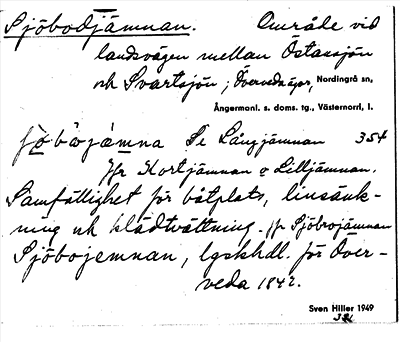 Sjöbodjämnan. Område vid
landsvägen mellan Östansjön
och Svartsjön, Överveda äger, Nordingrå sn,
Ångermanl. s. doms. tg., Västernorrl. l.
Se Långjämnan 354
Jfr Kortjämnan o Lilljämnan.
Samfällighet för båtplats, linsänk-
ning och klädtvättning. Jfr Sjöbrojämnan
Sjöbojemnan, lgskhdl. för Över-
veda 1842.
Sven Hiller 1949